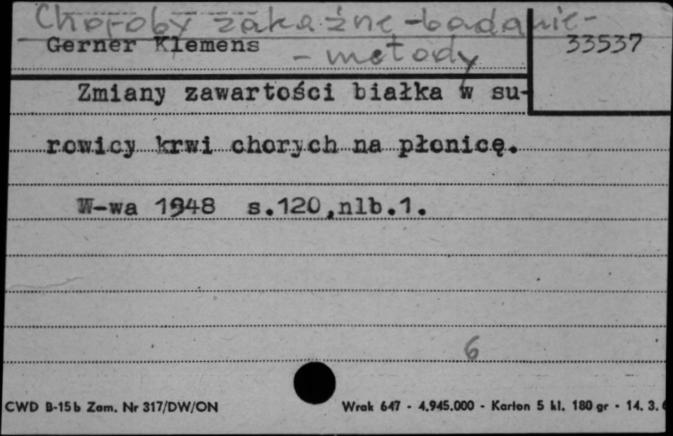 Choroby zakaźne - badanie -
Gerner Klemens
- metody
33537
Zmiany zawartości białka w su-
rowicy krwi chorych na płonicę.
W-wa 1948 s.120,nlb.1.
6
CWD B-15b Zam. Nr 317/DW/ON
Wrak 647 - 4.945.000 - Karton 5 kl. 180 gr - 14. 3. 6